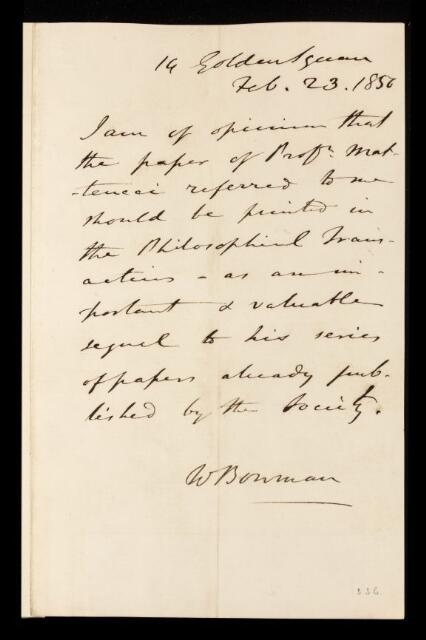 14 Golden Square
Feb. 23. 1850
I am of opinion that
the paper of Profr. Mat-
-teucci referred to me
should be printed in
the Philosophical Trans-
actions - as an im-
portant & valuable
sequel to his series
of papers already pub-
lished by the Society.
W Bowman
336.